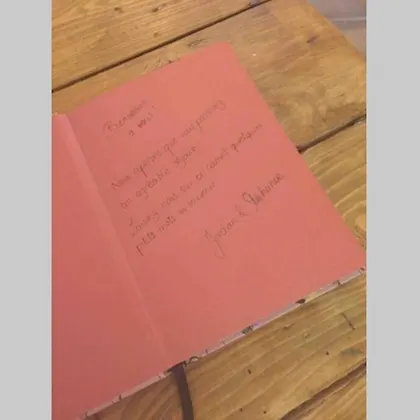 Bienvenue
à vous !
Nous espérons que vous passerez
un agréable séjour
Laissez nous sur ce carnet quelques
petits mots
Jordan & Stéphanie